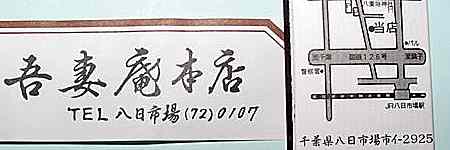 吾妻庵本店
TEL 八日市場(72)0107
八重垣神社
当店
至千葉
国道126号
至銚子
警察署
JR八日市場駅
千葉県八日市場市イ-2925